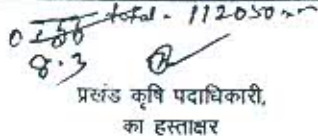 total - 112050
8.3
प्रखंड कृषि पदाधिकारी,
का हस्ताक्षर